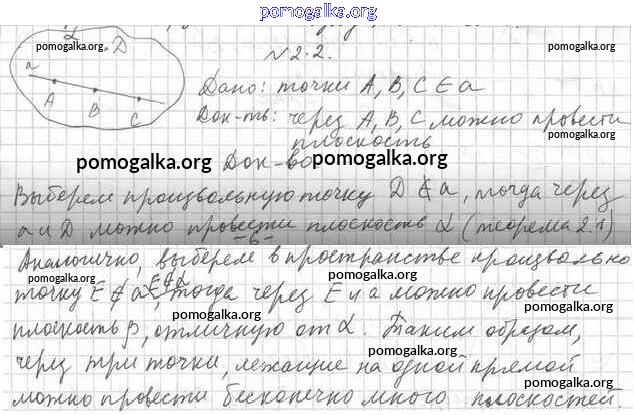 pomogalka.org
pomogalka.org
pomogalka.org
pomogalka.org
α
D
a
A
B
C
N 2.2.
Дано: точки A, B, C ∈ a
Док-ть: через A, B, C можно провести
плоскость
pomogalka.org
Док-во
pomogalka.org
Выберем произвольную точку D ∉ a, тогда через
a и D можно провести плоскость α (теорема 2.1)
pomogalka.org
pomogalka.org
- 6 -
Аналогично, выберем в пространстве произвольно
pomogalka.org
pomogalka.org
E ∉ α
точку E ∉ a, тогда через E и a можно провести
pomogalka.org
плоскость β, отличную от α. Таким образом,
pomogalka.org
pomogalka.org
через три точки, лежащие на одной прямой
pomogalka.org
pomogalka.org
можно провести бесконечно много плоскостей.
pomogalka.org